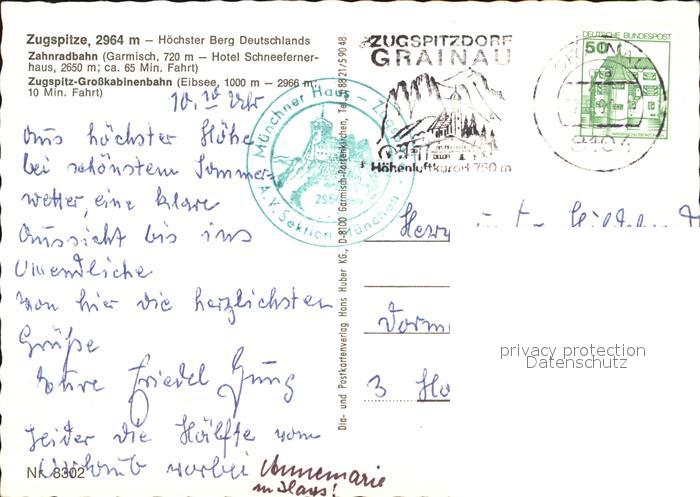 Zugspitze, 2964 m — Höchster Berg Deutschlands
Zahnradbahn (Garmisch, 720 m — Hotel Schneeferner-
haus, 2650 m; ca. 65 Min. Fahrt)
Zugspitz-Großkabinenbahn (Eibsee, 1000 m — 2966 m;
10 Min. Fahrt)
10.10 Uhr
Aus höchster Höhe
bei schönstem Sommer-
wetter, eine klare
Aussicht bis ins
Unendliche
von hier die herzlichsten
Grüße
Friedel
Leider die Hälfte vom
Urlaub vorbei
Annemarie
Nr. 8302
Münchner Haus
2964
A.V. Sektion München
Die- und Postkartenverlag Hans Huber KG., D-8100 Garmisch-Partenkirchen, Tel. 08821/59048
ZUGSPITZDORF
GRAINAU
Höhenluftkurort 750 m
DEUTSCHE BUNDESPOST
50
8104
3
privacy protection
Datenschutz